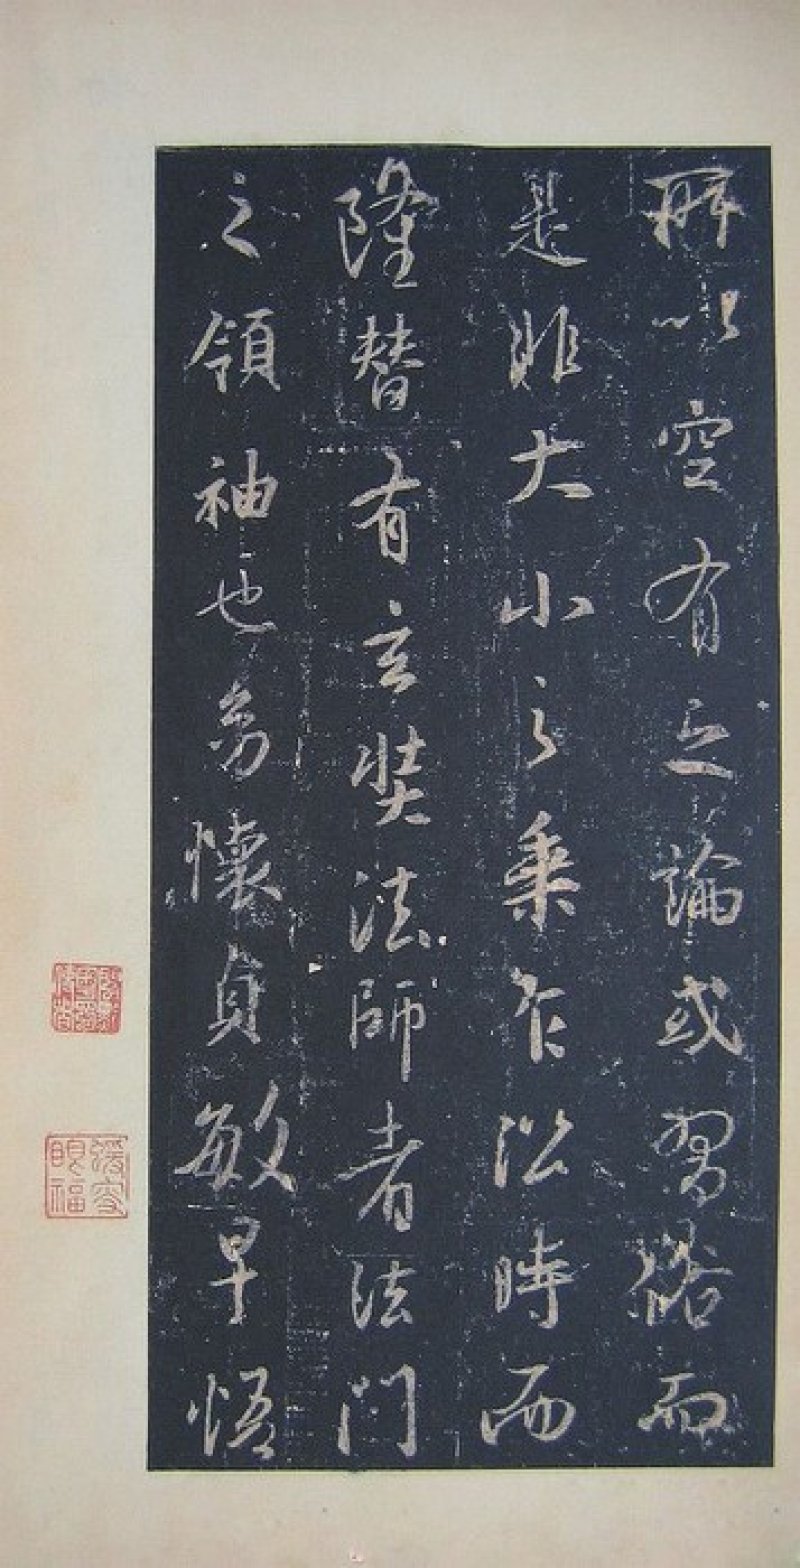 所以空有之論或習俗而
是非大小之乘乍沿時而
隆替有玄奘法師者法門
之領袖也幼懷貞敏早悟
蝯叟眼福